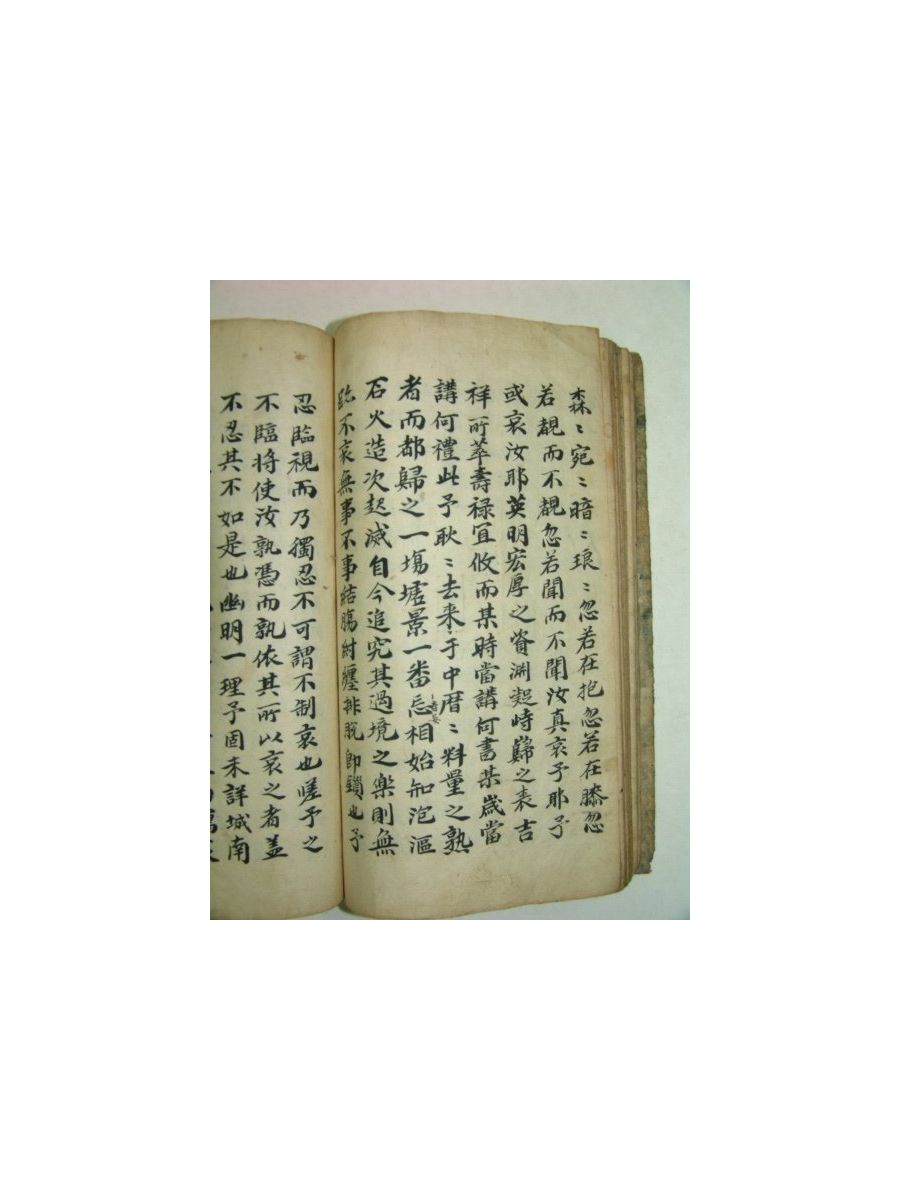 森〻宛〻暗〻琅〻忽若在抱忽若在膝忽
若覩而不覩忽若聞而不聞汝真哀予耶予
或哀汝耶英明宏厚之資渊凝峙歸之表吉
祥所萃壽禄宜攸而某時當講何書某歲當
講何禮此予耿〻去来于中曆〻料量之熟
者而都歸之一塲墟景一番忘相始知泡漚
石火造次起滅自今追究其過境之樂則無
不哀無事不事結膓紂纏排脫即鎖也予
忍臨視而乃獨忍不可謂不制哀也嗟予之
不臨將使汝孰憑而孰依其所以哀之者盖
不忍其不如是也幽明一理予固未詳城南